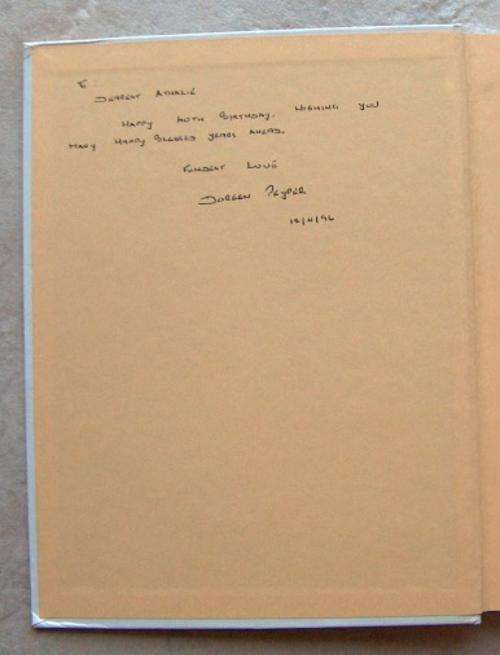 To:
Dearest Athalie
Happy 40th Birthday. Wishing you
many many blessed years ahead.
Fondest Love
Doreen Peyper